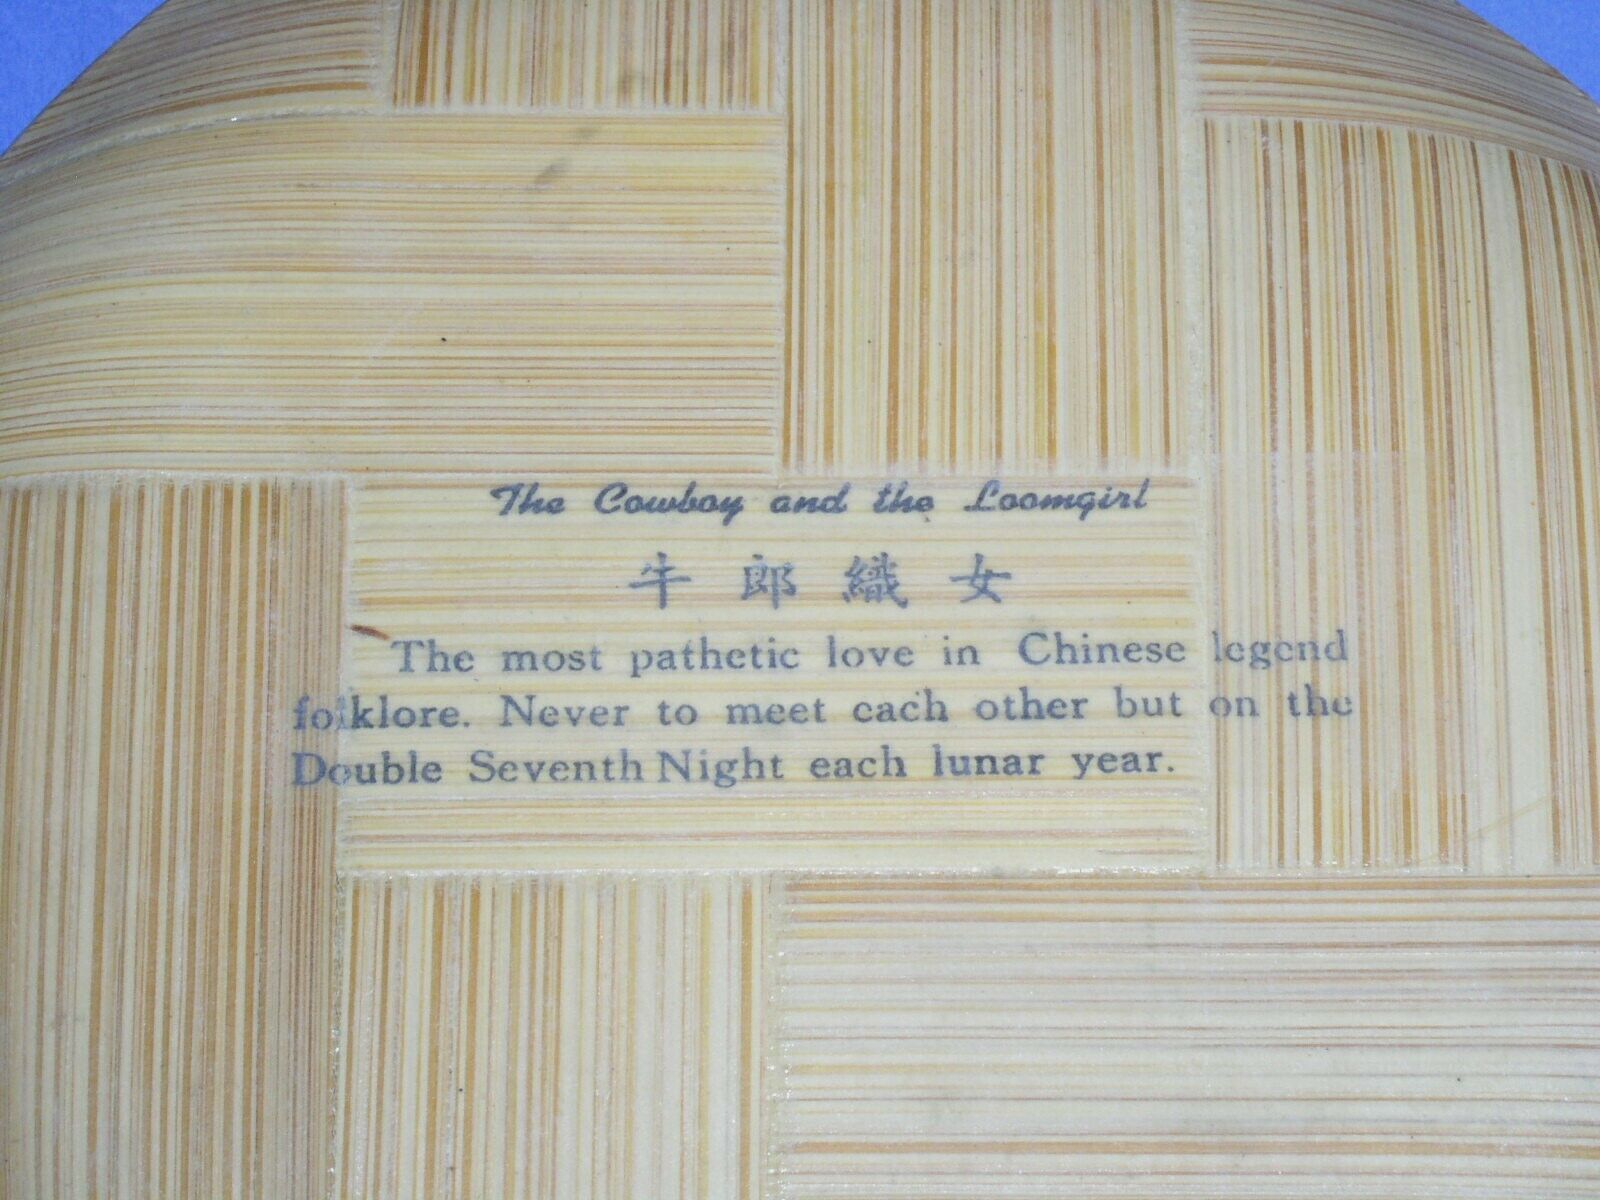 The Cowboy and the Loomgirl
牛郎織女
The most pathetic love in Chinese legend
folklore. Never to meet each other but on the
Double Seventh Night each lunar year.